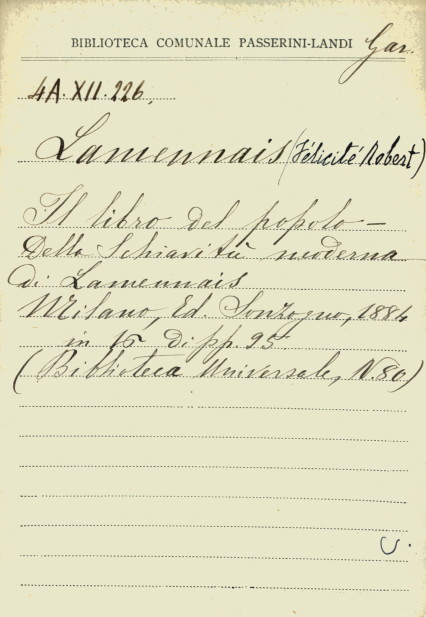 BIBLIOTECA COMUNALE PASSERINI-LANDI Gar.
4A. XII. 226.
Lamennais (Félicité Robert)
Il libro del popolo —
Della Schiavitù moderna
di Lamennais
Milano, Ed. Sonzogno, 1884
in 16 di pp. 95
(Biblioteca Universale, N. 80)